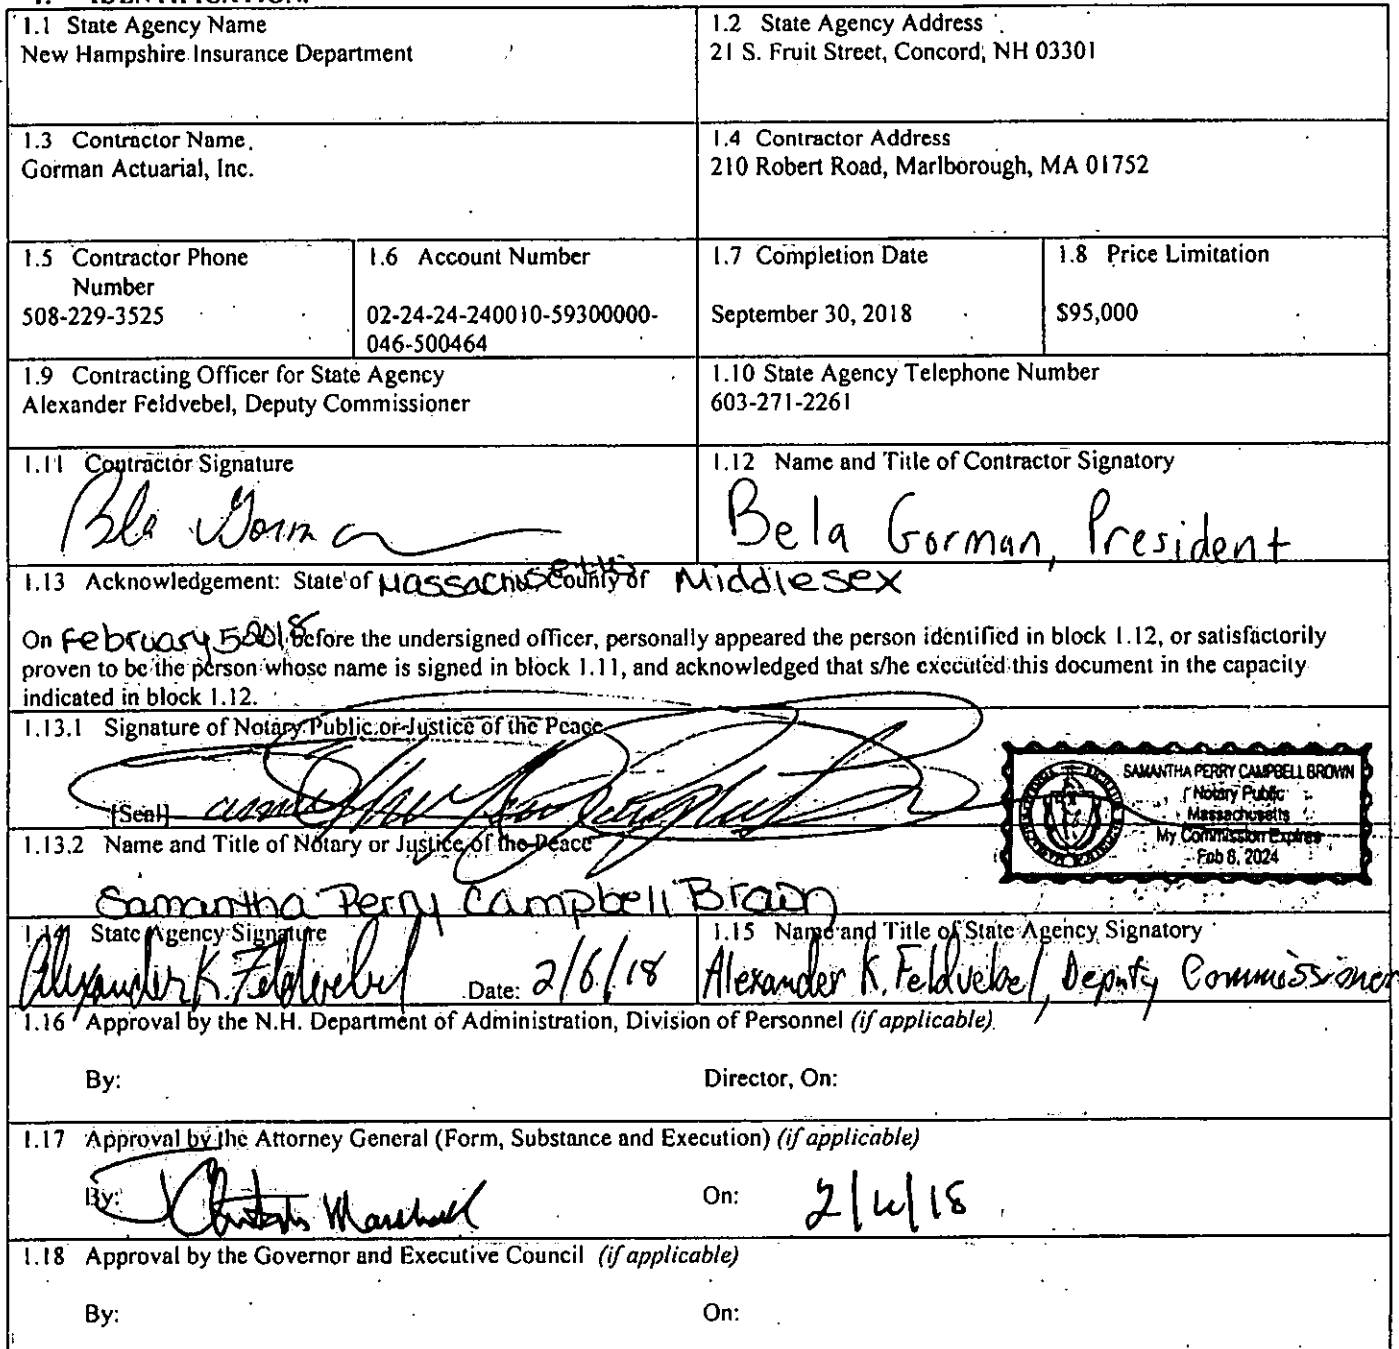 1. IDENTIFICATION.
1.1 State Agency Name
New Hampshire Insurance Department
1.2 State Agency Address
21 S. Fruit Street, Concord, NH 03301
1.3 Contractor Name
Gorman Actuarial, Inc.
1.4 Contractor Address
210 Robert Road, Marlborough, MA 01752
1.5 Contractor Phone
Number
508-229-3525
1.6 Account Number
02-24-24-240010-59300000-
046-500464
1.7 Completion Date
September 30, 2018
1.8 Price Limitation
$95,000
1.9 Contracting Officer for State Agency
Alexander Feldvebel, Deputy Commissioner
1.10 State Agency Telephone Number
603-271-2261
1.11 Contractor Signature
Bela Gorman
1.12 Name and Title of Contractor Signatory
Bela Gorman, President
1.13 Acknowledgement: State of Massachusetts County of Middlesex
On February 5 2018 before the undersigned officer, personally appeared the person identified in block 1.12, or satisfactorily
proven to be the person whose name is signed in block 1.11, and acknowledged that s/he executed this document in the capacity
indicated in block 1.12.
1.13.1 Signature of Notary Public or Justice of the Peace
[Seal]
SAMANTHA PERRY CAMPBELL BROWN
Notary Public
Massachusetts
My Commission Expires
Feb 8, 2024
1.13.2 Name and Title of Notary or Justice of the Peace
Samantha Perry Campbell Brown
1.14 State Agency Signature
Alexander K. Feldvebel Date: 2/6/18
1.15 Name and Title of State Agency Signatory
Alexander K. Feldvebel, Deputy Commissioner
1.16 Approval by the N.H. Department of Administration, Division of Personnel (if applicable)
By: Director, On:
1.17 Approval by the Attorney General (Form, Substance and Execution) (if applicable)
By: Marshall On: 2/6/18
1.18 Approval by the Governor and Executive Council (if applicable)
By: On: